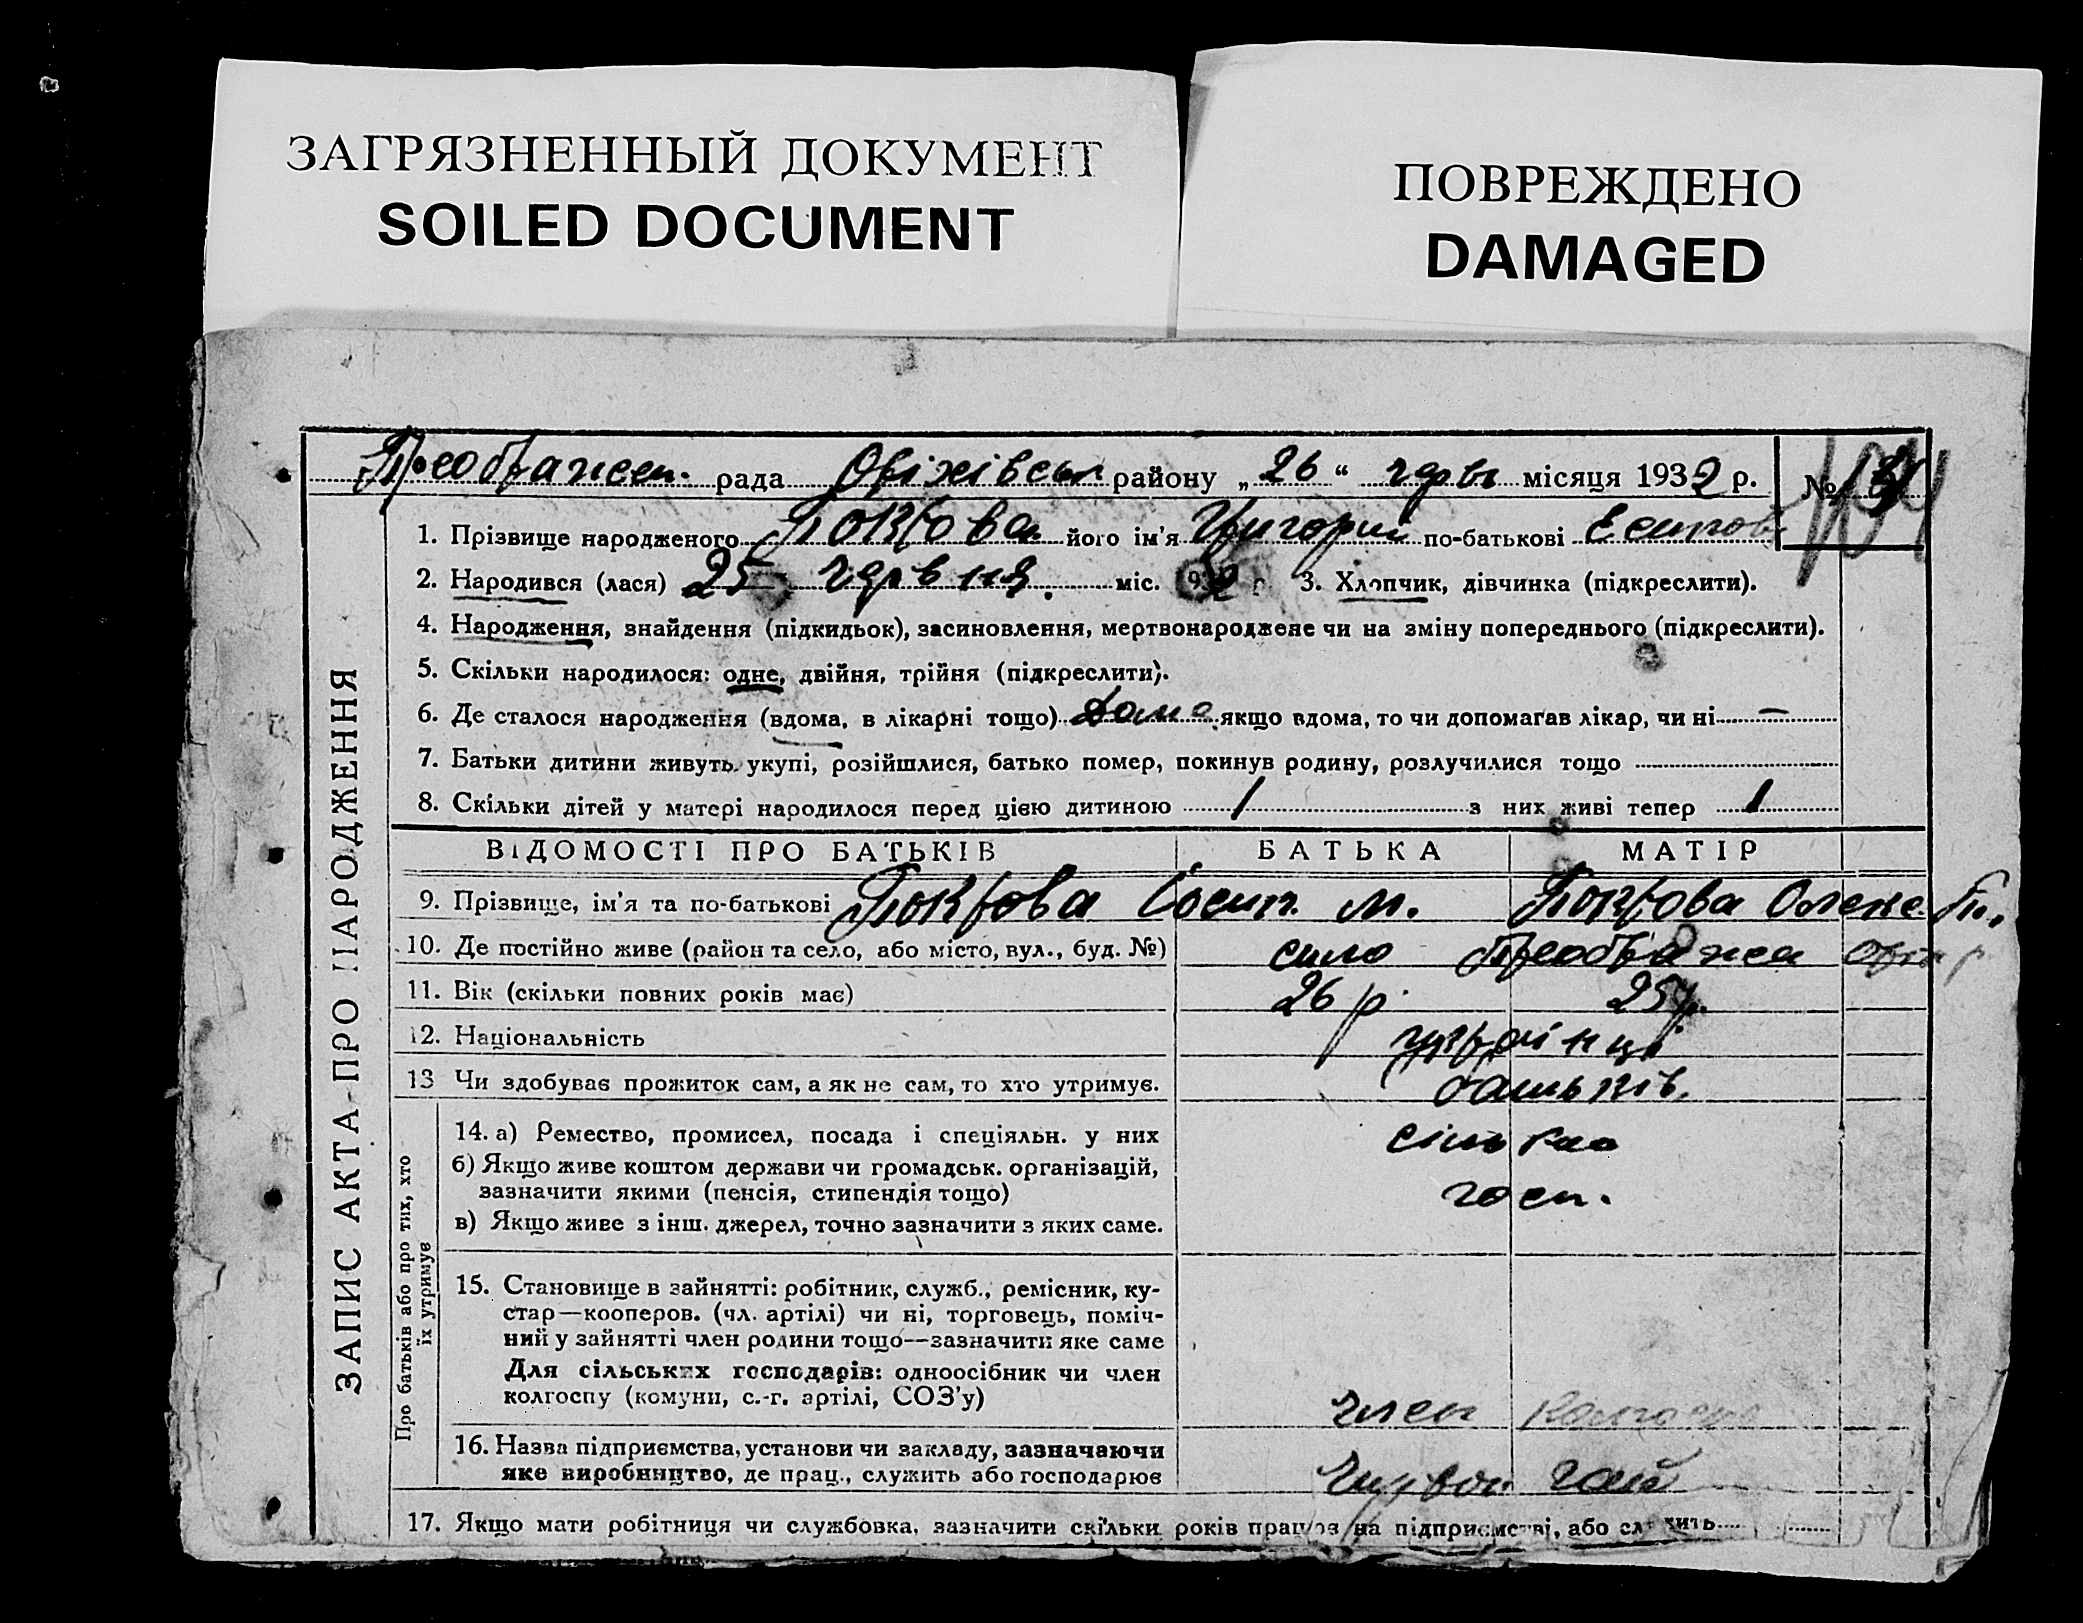 ЗАГРЯЗНЕННЫЙ ДОКУМЕНТ
SOILED DOCUMENT
ПОВРЕЖДЕНО
DAMAGED
Преображен. рада Оріхівськ району „26“ червн місяця 1932 р. №
ЗАПИС АКТА ПРО НАРОДЖЕННЯ
1. Прізвище народженого Покрова його ім'я Григорий по-батькові
2. Народився (лася) 25 червня міс. 3. Хлопчик, дівчинка (підкреслити).
4. Народження, знайдення (підкидьок), засиновлення, мертвонароджене чи на зміну попереднього (підкреслити).
5. Скільки народилося: одне, двійня, трійня (підкреслити).
6. Де сталося народження (вдома, в лікарні тощо) Дома якщо вдома, то чи допомагав лікар, чи ні —
7. Батьки дитини живуть укупі, розійшлися, батько помер, покинув родину, розлучилися тощо
8. Скільки дітей у матері народилося перед цією дитиною 1 з них живі тепер 1
ВІДОМОСТІ ПРО БАТЬКІВ БАТЬКА МАТІР
9. Прізвище, ім'я та по-батькові Покрова Осип. М. Покрова Олекс. П.
10. Де постійно живе (район та село, або місто, вул., буд. №) село Преображен
11. Вік (скільки повних років має) 26 р. 25 р.
12. Національність українці
13 Чи здобуває прожиток сам, а як не сам, то хто утримує. батьків.
Про батьків або про тих, хто
їх утримує
14. а) Ремество, промисел, посада і спеціяльн. у них сільско
б) Якщо живе коштом держави чи громадськ. організацій,
зазначити якими (пенсія, стипендія тощо) госп.
в) Якщо живе з інш. джерел, точно зазначити з яких саме.
15. Становище в зайнятті: робітник, служб., ремісник, ку-
стар—кооперов. (чл. артілі) чи ні, торговець, поміч-
ний у зайнятті член родини тощо—зазначити яке саме
Для сільських господарів: одноосібник чи член
колгоспу (комуни, с.-г. артілі, СОЗ'у) член колгоспу
16. Назва підприємства, установи чи закладу, зазначаючи
яке виробництво, де прац., служить або господарює Червон гай
17. Якщо мати робітниця чи службовка, зазначити скільки років працює на підприємстві, або служить